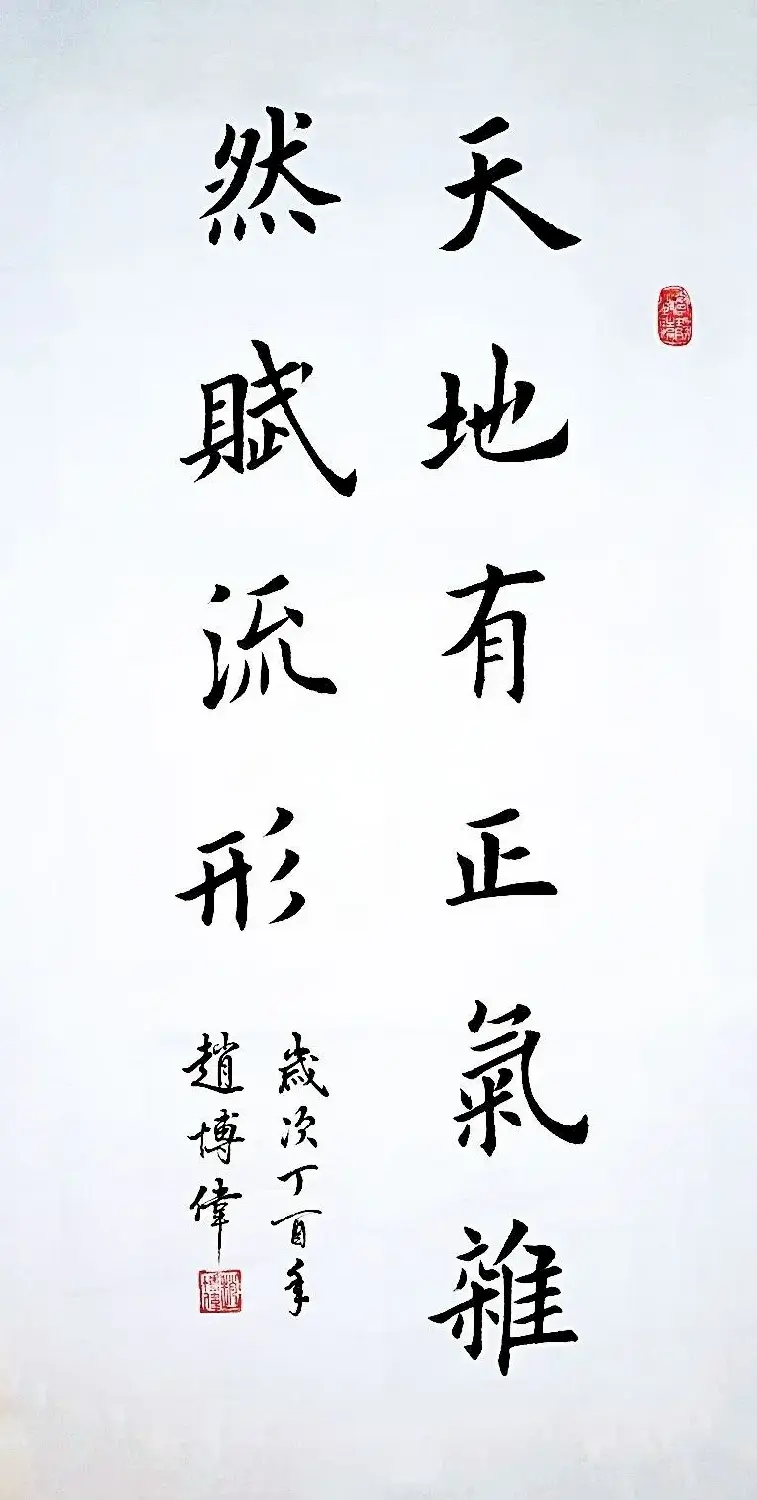 天地有正氣雜
然賦流形
歲次丁酉年
趙博偉